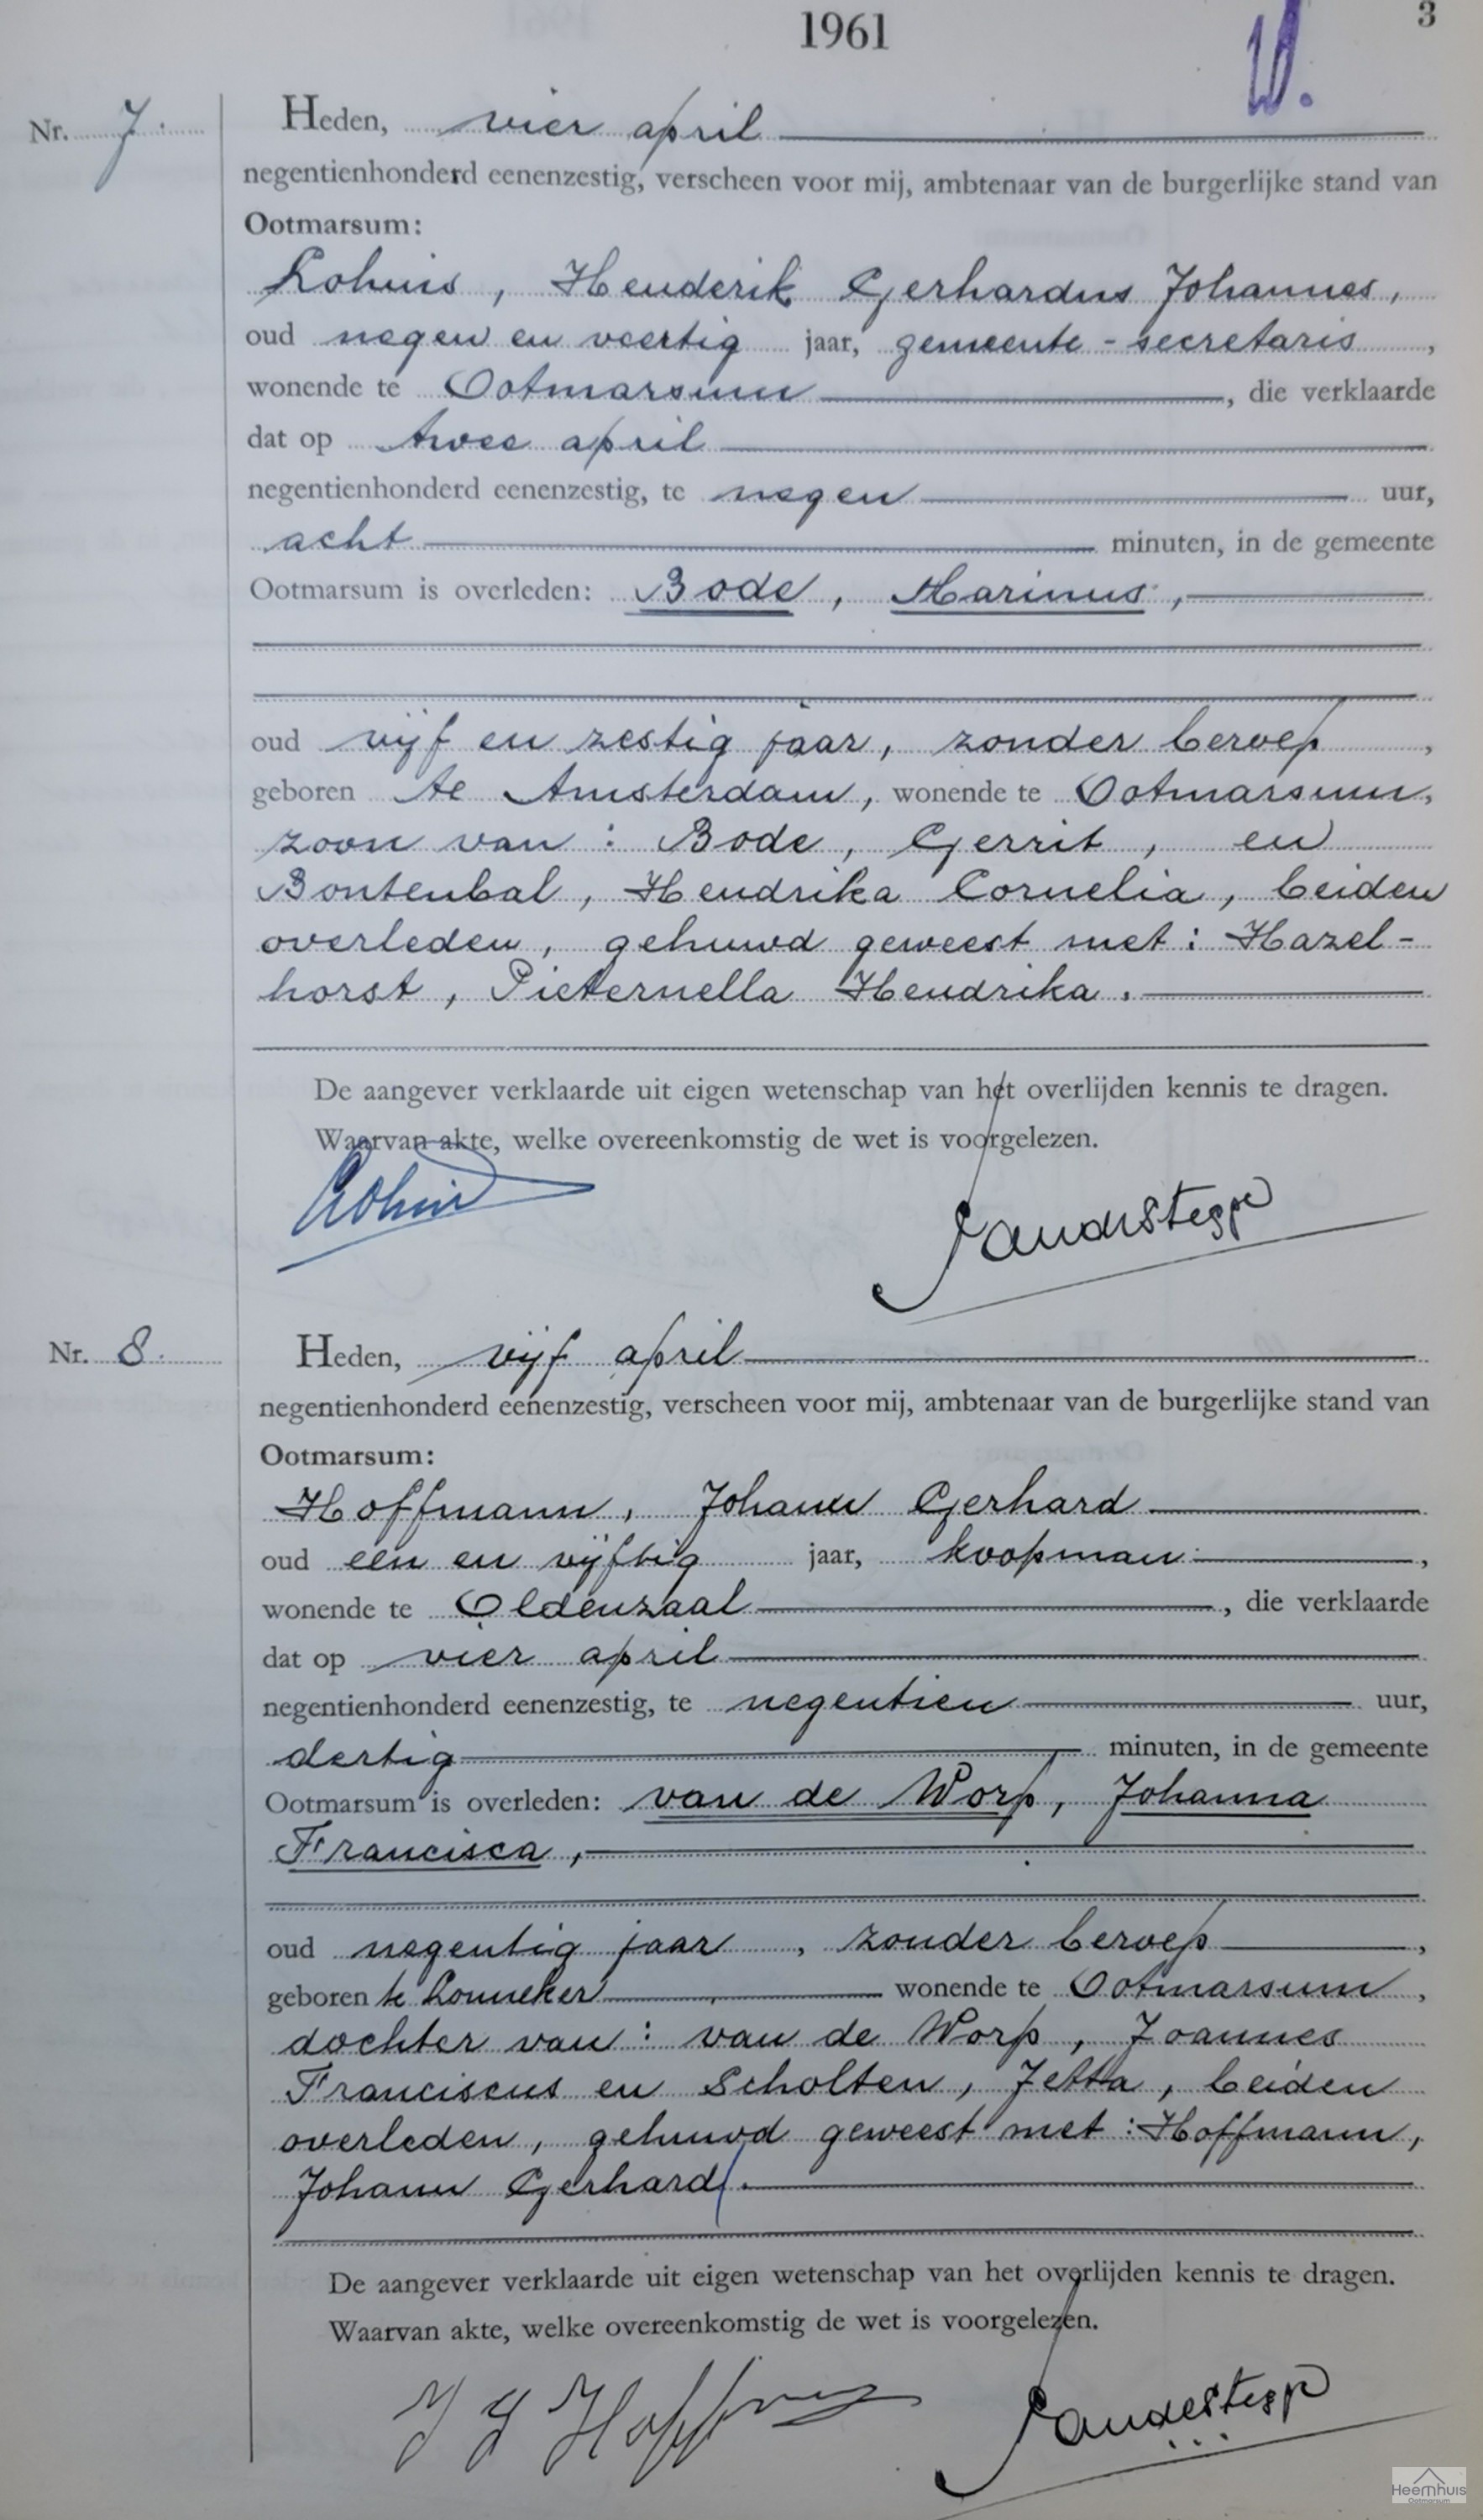 1961
3
Nr. 7.
Heden, vier april
negentienhonderd eenenzestig, verscheen voor mij, ambtenaar van de burgerlijke stand van
Ootmarsum:
Lohuis, Henderik Gerhardus Johannes,
oud negen en veertig jaar, gemeente-secretaris,
wonende te Ootmarsum, die verklaarde
dat op twee april
negentienhonderd eenenzestig, te negen uur,
acht minuten, in de gemeente
Ootmarsum is overleden: Bode, Marinus,
oud vijf en zestig jaar, zonder beroep,
geboren te Amsterdam, wonende te Ootmarsum,
zoon van: Bode, Gerrit, en
Bontenbal, Hendrika Cornelia, beiden
overleden, gehuwd geweest met: Hazel-
horst, Pieternella Hendrika.
De aangever verklaarde uit eigen wetenschap van het overlijden kennis te dragen.
Waarvan akte, welke overeenkomstig de wet is voorgelezen.
Lohuis
Nr. 8.
Heden, vijf april
negentienhonderd eenenzestig, verscheen voor mij, ambtenaar van de burgerlijke stand van
Ootmarsum:
Hoffmann, Johann Gerhard
oud één en vijftig jaar, koopman,
wonende te Oldenzaal, die verklaarde
dat op vier april
negentienhonderd eenenzestig, te negentien uur,
dertig minuten, in de gemeente
Ootmarsum is overleden: van de Worp, Johanna
Francisca,
oud negentig jaar, zonder beroep,
geboren te Lonneker wonende te Ootmarsum,
dochter van: van de Worp, Joannes
Franciscus en Scholten, Jetta, beiden
overleden, gehuwd geweest met: Hoffmann,
Johann Gerhard.
De aangever verklaarde uit eigen wetenschap van het overlijden kennis te dragen.
Waarvan akte, welke overeenkomstig de wet is voorgelezen.
J G Hoffmann
Heemhuis
Ootmarsum